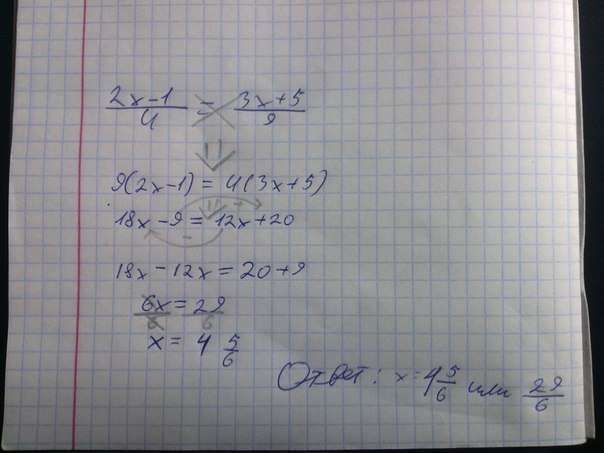 (2x-1)/4 = (3x+5)/9
9(2x-1) = 4(3x+5)
18x-9 = 12x+20
18x-12x = 20+9
6x/6 = 29/6
x = 4 5/6
Ответ: x = 4 5/6 или 29/6